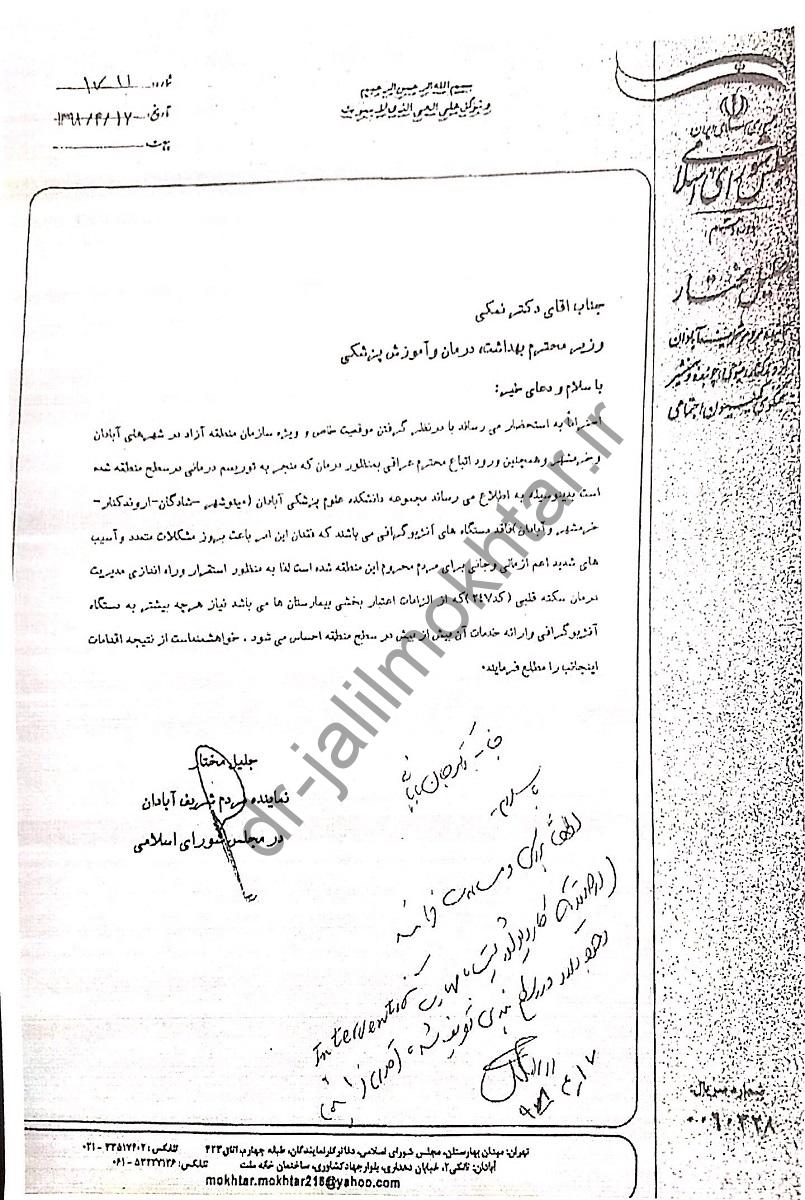 بسم الله الرحمن الرحیم
و توکل علی الحی الذی لا یموت
شماره: ۱۷۰۱۱
تاریخ: ۱۳۹۸/۴/۱۷
پیوست:
جمهوری اسلامی ایران
مجلس شورای اسلامی
جلیل مختار
جناب آقای دکتر نمکی
وزیر محترم بهداشت، درمان و آموزش پزشکی
با سلام و دعای خیر:
احتراماً به استحضار می رساند با درنظر گرفتن موقعیت خاص و ویژه سازمان منطقه آزاد در شهرهای آبادان
و خرمشهر و همچنین ورود اتباع محترم عراقی بمنظور درمان که منجر به توریسم درمانی در سطح منطقه شده
است بدینوسیله به اطلاع می رساند مجموعه دانشکده علوم پزشکی آبادان (مینوشهر -شادگان-اروندکنار-
خرمشهر و آبادان)فاقد دستگاه های آنژیوگرافی می باشند که فقدان این امر باعث بروز مشکلات متعدد و آسیب
های شدید اعم ازمالی وجانی برای مردم محروم این منطقه شده است لذا به منظور استقرار وراه اندازی مدیریت
درمان سکته قلبی (کد۲۴۷)که از الزامات اعتبار بخشی بیمارستان ها می باشد نیاز هرچه بیشتر به دستگاه
آنژیوگرافی وارائه خدمات آن بیش از پیش در سطح منطقه احساس می شود . خواهشمنداست از نتیجه اقدامات
اینجانب را مطلع فرمایند.
جلیل مختار
نماینده مردم شریف آبادان
در مجلس شورای اسلامی
با سلام
Intervention
dr-jalilmokhtar.ir
شماره سریال:
۰۰۹۰۳۲۸
تهران: میدان بهارستان، مجلس شورای اسلامی، دفاتر کار نمایندگان، طبقه چهارم، اتاق ۴۲۳ تلفکس: ۳۳۵۱۷۶۰۲ - ۰۲۱
آبادان: تانکی۲، خیابان دهداری، بلوار جهاد کشاورزی، ساختمان خانه ملت تلفکس: ۵۳۲۳۷۱۲۶ - ۰۶۱
mokhtar.mokhtar218@yahoo.com